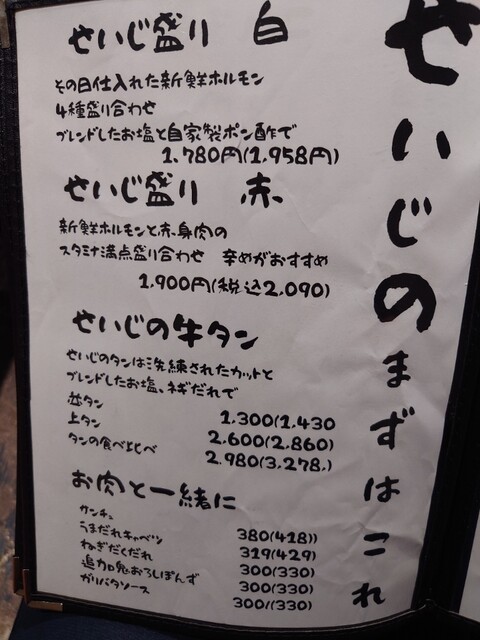 せいじのまずはこれ
せいじ盛り 白
その日仕入れた新鮮ホルモン
4種盛り合わせ
ブレンドしたお塩と自家製ポン酢で
1.780円(1.958円)
せいじ盛り 赤
新鮮ホルモンと赤身肉の
スタミナ満点盛り合わせ 辛めがおすすめ
1.900円(税込2.090)
せいじの牛タン
せいじのタンは洗練されたカットと
ブレンドしたお塩、ネギだれで
並タン 1.300(1.430
上タン 2.600(2.860)
タンの食べ比べ 2.980(3.278.)
お肉と一緒に
カンチュ 380(418))
うまだれキャベツ 319(429)
ねぎだくだれ 300(330)
追加鬼おろしぽんず 300(330)
ガリバタソース 300/(330)